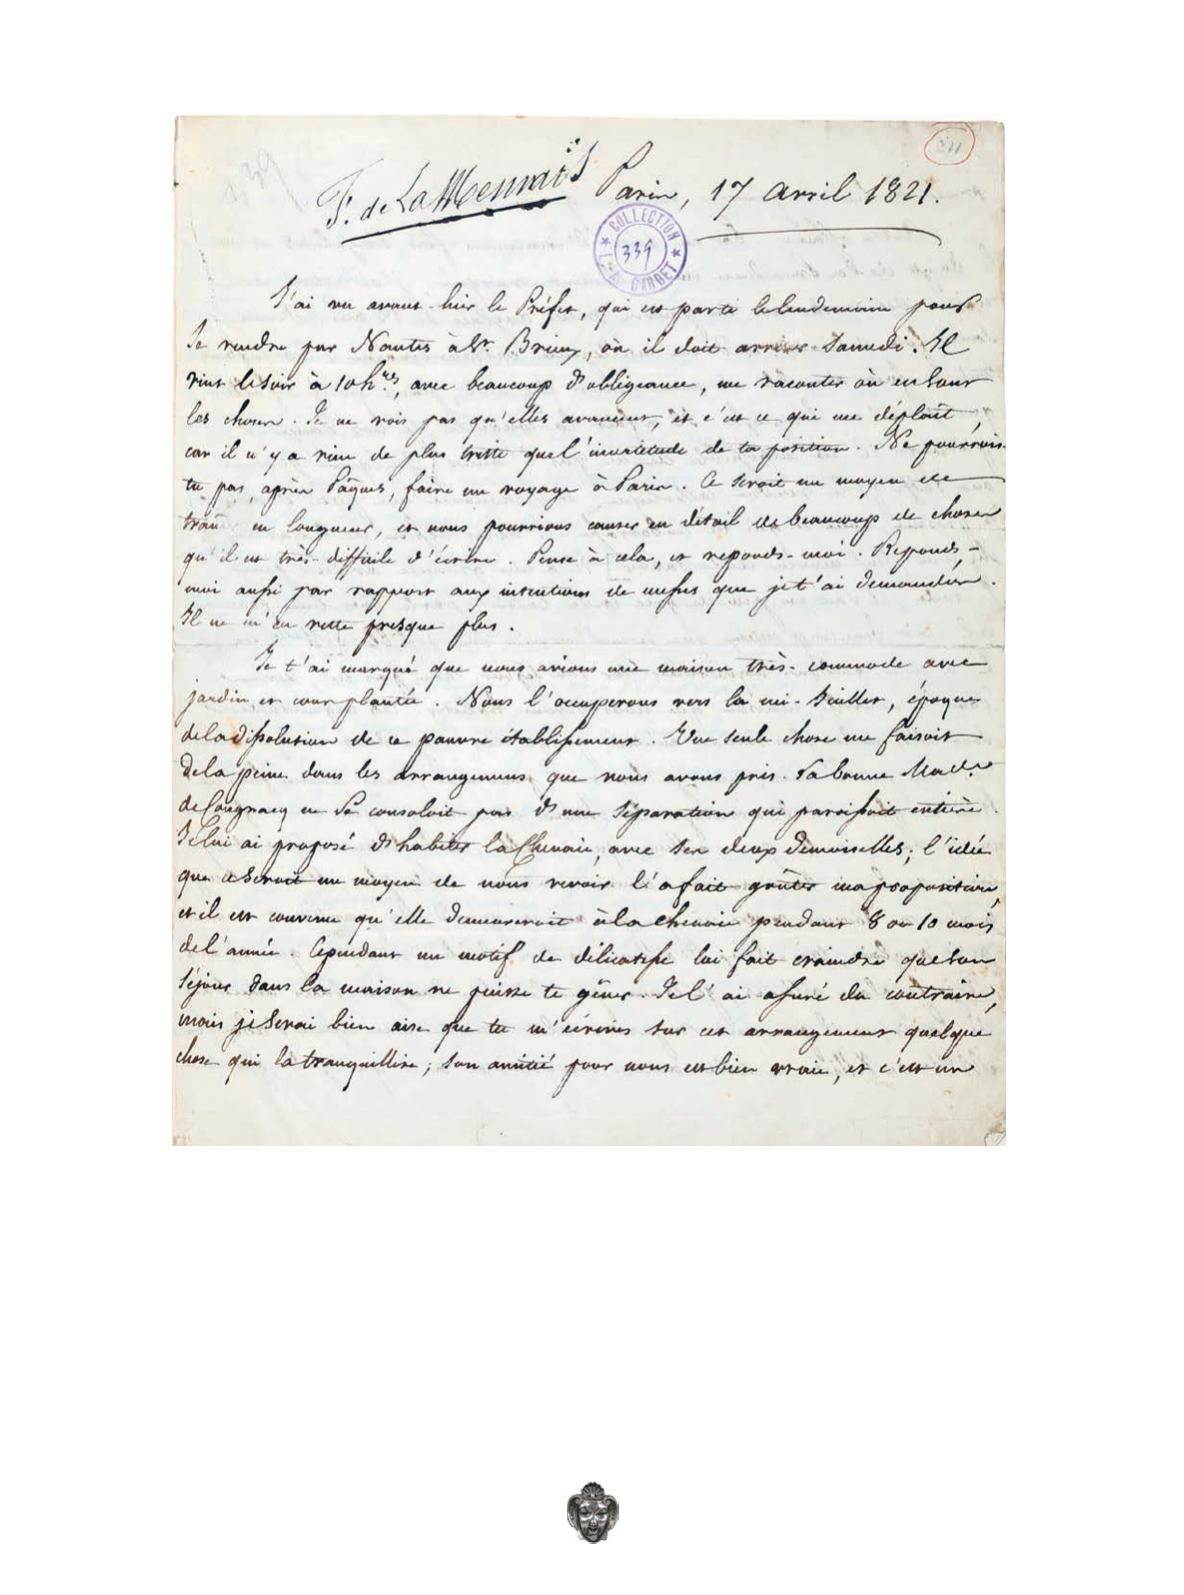 F. de La Mennais
Paris, 17 avril 1821.
COLLECTION
339
J'ai vu avant-hier le Préfet, qui est parti le lendemain pour
se rendre par Nantes à St. Brieux, où il doit arriver Samedi. Il
vint le soir à 10 h.res, avec beaucoup d'obligeance, me raconter où en sont
les choses. Je ne vois pas qu'elles avancent, et c'est ce qui me déplaît
car il n'y a rien de plus triste que l'incertitude de ta position. Ne pourrois-
tu pas, après Pâques, faire un voyage à Paris. Ce seroit un moyen de
en longueur, et nous pourrions causer en détail de beaucoup de choses
qu'il est très-difficile d'écrire. Pense à cela, et reponds-moi. Reponds-
moi aussi par rapport aux intentions de messes que je t'ai demandées.
Il ne m'en reste presque plus.
Je t'ai marqué que nous avions une maison très-commode avec
jardin et cour plantée. Nous l'occuperons vers la mi-Juillet, époque
de la dissolution de ce pauvre établissement. Une seule chose me faisoit
de la peine dans les arrangemens que nous avons pris. La bonne Mad.e
de ne se consoloit pas d'une séparation qui paraissoit entière.
Je lui ai proposé d'habiter la Chenaie, avec ses deux Demoiselles; l'idée
que ce seroit un moyen de nous revoir l'a fait goûter ma proposition,
et il est convenu qu'elle demeureroit à la Chenaie pendant 8 ou 10 mois
de l'année. Cependant un motif de délicatesse lui fait craindre que son
séjour dans la maison ne puisse te gêner. Je l'ai assuré du contraire,
mais je serai bien aise que tu m'écrives sur cet arrangement quelque
chose qui la tranquillise; son amitié pour nous est bien vraie, et c'est un